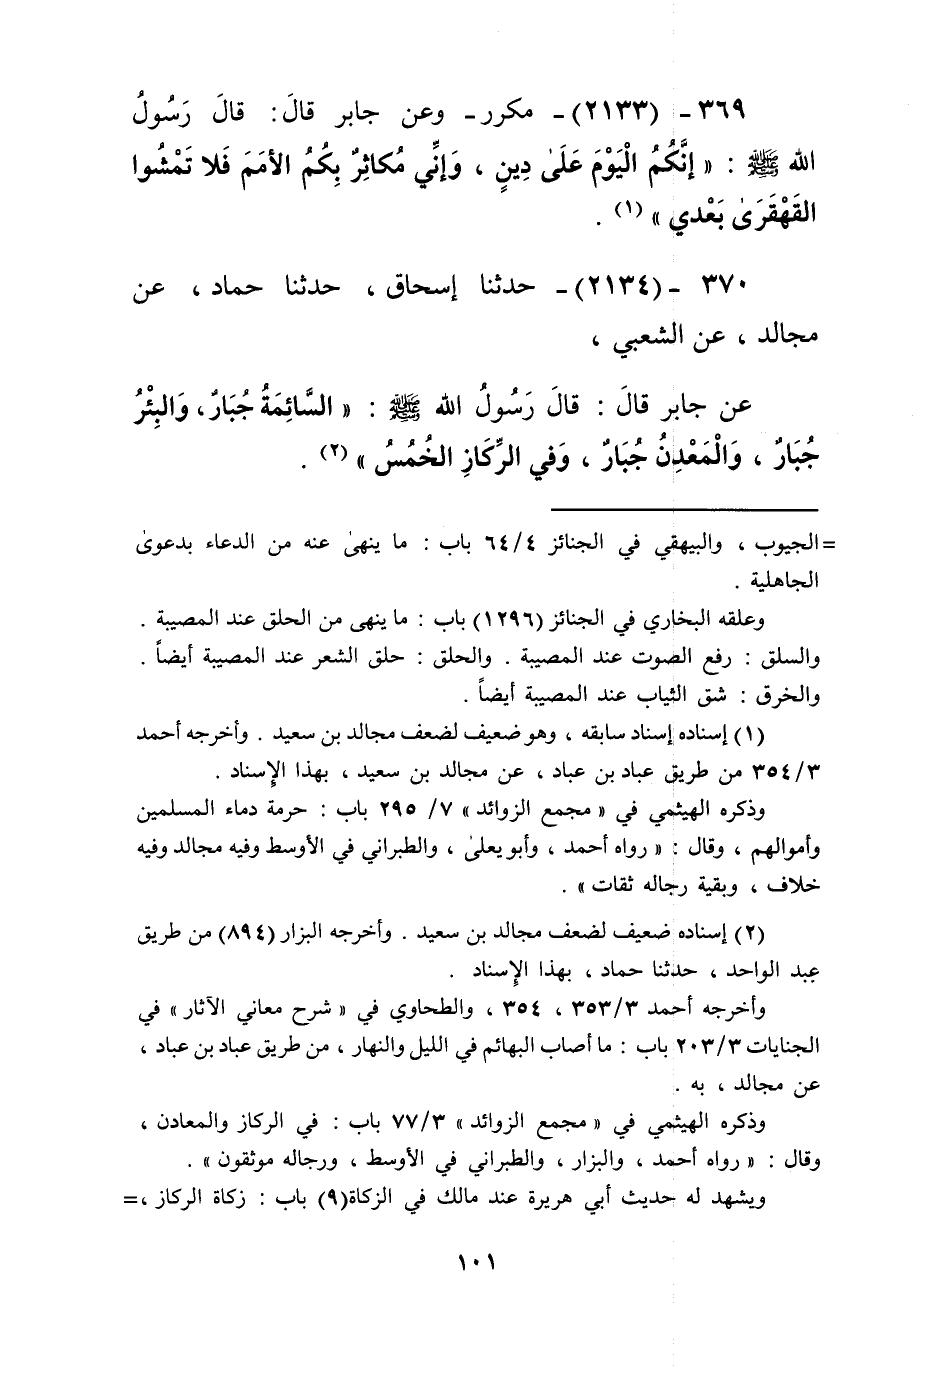 ٣٦٩ - (٢١٣٣)- مكرر - وعن جابر قالَ : قالَ رَسُولُ
الله ﷺ : « إنَّكُمُ الْيَوْمَ عَلَىٰ دِينٍ ، وَإنِّي مُكاثِرٌ بِكُمُ الأمَمَ فَلا تَمْشُوا
القَهْقَرَىٰ بَعْدي » (١) .
٣٧٠ - (٢١٣٤)- حدثنا إسحاق ، حدثنا حماد ، عن
مجالد ، عن الشعبي ،
عن جابر قالَ : قالَ رَسُولُ الله ﷺ : « السَّائِمَةُ جُبَارٌ، وَالبِئْرُ
جُبَارٌ ، وَالْمَعْدِنُ جُبَارٌ ، وَفي الرِّكَازِ الخُمُسُ » (٢) .
=الجيوب ، والبيهقي في الجنائز ٦٤/٤ باب : ما ينهىٰ عنه من الدعاء بدعوىٰ
الجاهلية .
وعلقه البخاري في الجنائز (١٢٩٦) باب : ما ينهى من الحلق عند المصيبة .
والسلق : رفع الصوت عند المصيبة . والحلق : حلق الشعر عند المصيبة أيضاً .
والخرق : شق الثياب عند المصيبة أيضاً .
(١) إسناده إسناد سابقه ، وهو ضعيف لضعف مجالد بن سعيد . وأخرجه أحمد
٣٥٤/٣ من طريق عباد بن عباد ، عن مجالد بن سعيد ، بهذا الإسناد .
وذكره الهيثمي في « مجمع الزوائد » ٧/ ٢٩٥ باب : حرمة دماء المسلمين
وأموالهم ، وقال : « رواه أحمد ، وأبو يعلىٰ ، والطبراني في الأوسط وفيه مجالد وفيه
خلاف ، وبقية رجاله ثقات » .
(٢) إسناده ضعيف لضعف مجالد بن سعيد . وأخرجه البزار (٨٩٤) من طريق
عبد الواحد ، حدثنا حماد ، بهذا الإسناد .
وأخرجه أحمد ٣٥٣/٣ ، ٣٥٤ ، والطحاوي في « شرح معاني الآثار » في
الجنايات ٢٠٣/٣ باب : ما أصاب البهائم في الليل والنهار ، من طريق عباد بن عباد ،
عن مجالد ، به .
وذكره الهيثمي في « مجمع الزوائد » ٧٧/٣ باب : في الركاز والمعادن ،
وقال : « رواه أحمد ، والبزار ، والطبراني في الأوسط ، ورجاله موثقون » .
ويشهد له حديث أبي هريرة عند مالك في الزكاة(٩) باب : زكاة الركاز ،=
١٠١